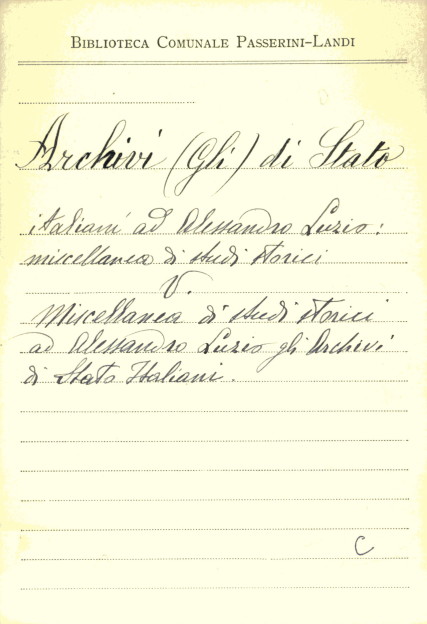 BIBLIOTECA COMUNALE PASSERINI-LANDI
Archivi (Gli) di Stato
italiani ad Alessandro Luzio:
miscellanea di studi storici
V.
Miscellanea di studi storici
ad Alessandro Luzio gli Archivi
di Stato Italiani.
C